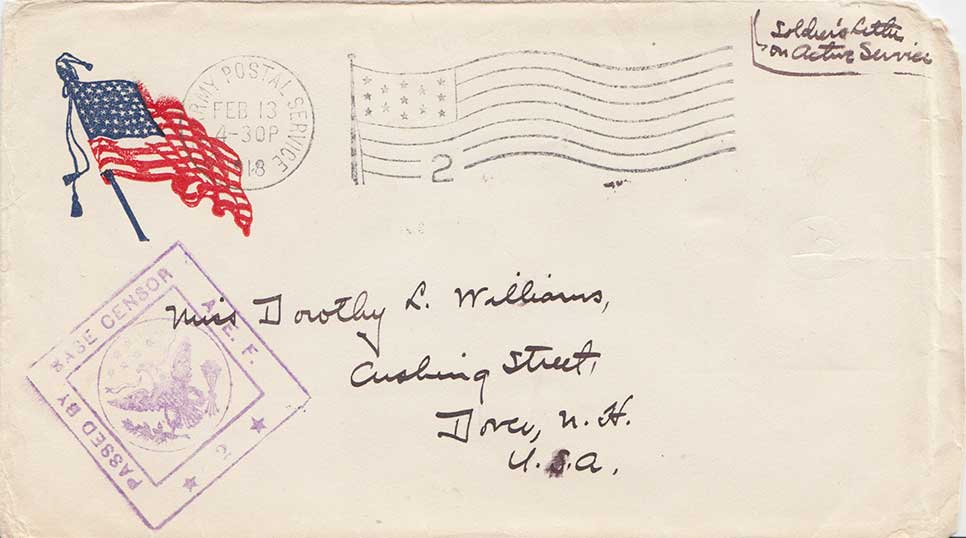 Soldier's Letter
on Active Service
ARMY POSTAL SERVICE
FEB 13
4-30P
1918
2
PASSED BY BASE CENSOR
A. E. F.
2
Miss Dorothy L. Williams,
Cushing Street,
Dover, N. H.
U.S.A.